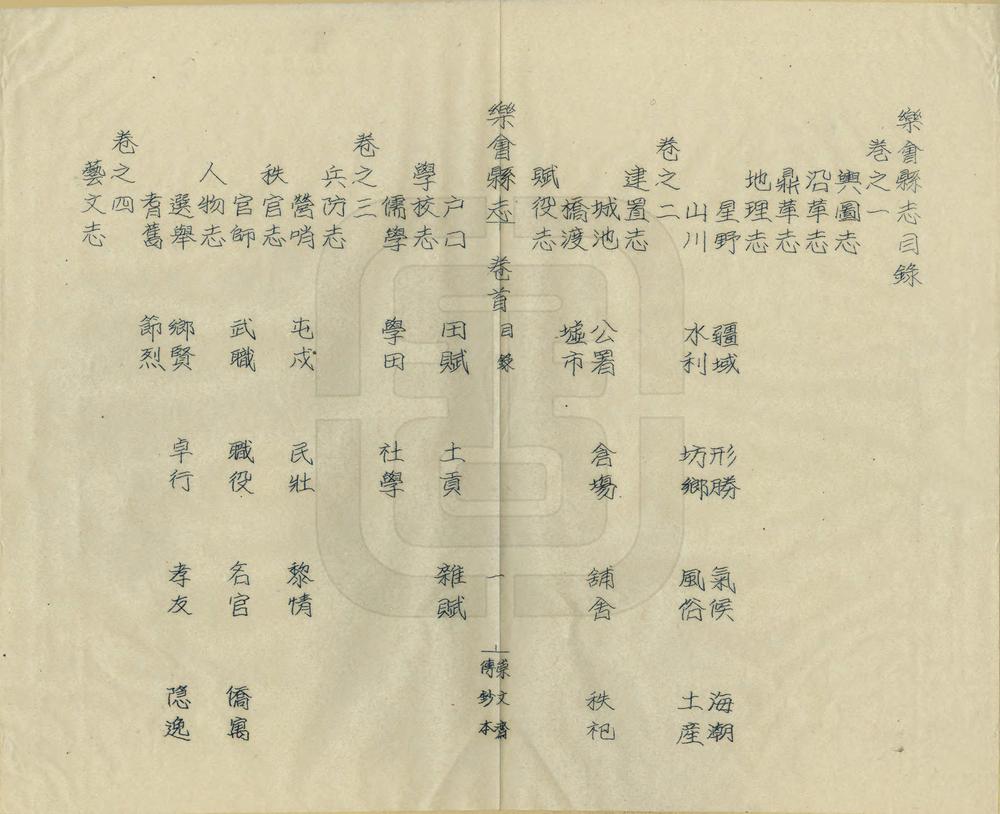 樂會縣志目錄
卷之一
輿圖志
沿革志
鼎革志
地理志
星野 疆域 形勝 氣候 海潮
山川 水利 坊鄉 風俗 土產
卷之二
建置志
城池 公署 倉場 舖舍 秩祀
橋渡 墟市
賦役志
樂會縣志 卷首 目錄 一
崇文齋
傳鈔本
戶口 田賦 土貢 雜賦
學校志
儒學 學田 社學
卷之三
兵防志
營哨 屯戍 民壯 黎情
秩官志
官師 武職 職役 名官 僑寓
人物志
選舉 鄉賢 卓行 孝友 隱逸
耆舊 節烈
卷之四
藝文志